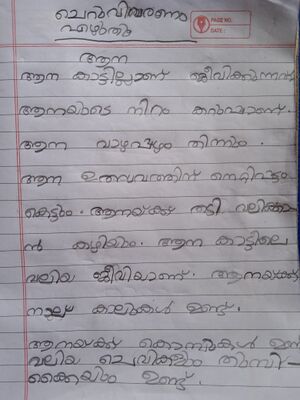 ചെറുവിവരണം
എഴുതുക
PAGE NO.
DATE :
ആന
ആന കാട്ടിലാണ് ജീവിക്കുന്നത്
ആനയുടെ നിറം കറുപ്പാണ്.
ആന വാഴപ്പഴം തിന്നും .
ആന ഉത്സവത്തിന് നെറ്റിപ്പട്ടം
കെട്ടും. ആനയ്ക്ക് തടി വലിക്കാ
ൻ കഴിയും. ആന കാട്ടിലെ
വലിയ ജീവിയാണ്. ആനയ്ക്ക്
നാല് കാലുകൾ ഉണ്ട്.
ആനയ്ക്ക് കൊമ്പുകൾ ഉണ്
വലിയ ചെവികളും തുമ്പി-
ക്കൈയും ഉണ്ട്.